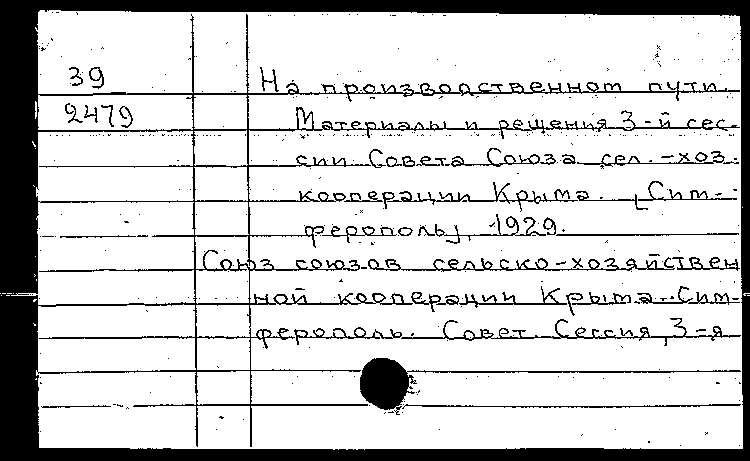 39
2479
На производственном пути.
Материалы и решения 3-й сес-
сии Совета Союза сел.-хоз.
кооперации Крыма. [Сим-
ферополь], 1929.
Союз союзов сельско-хозяйствен
ной кооперации Крыма. Сим-
ферополь. Совет. Сессия, 3-я